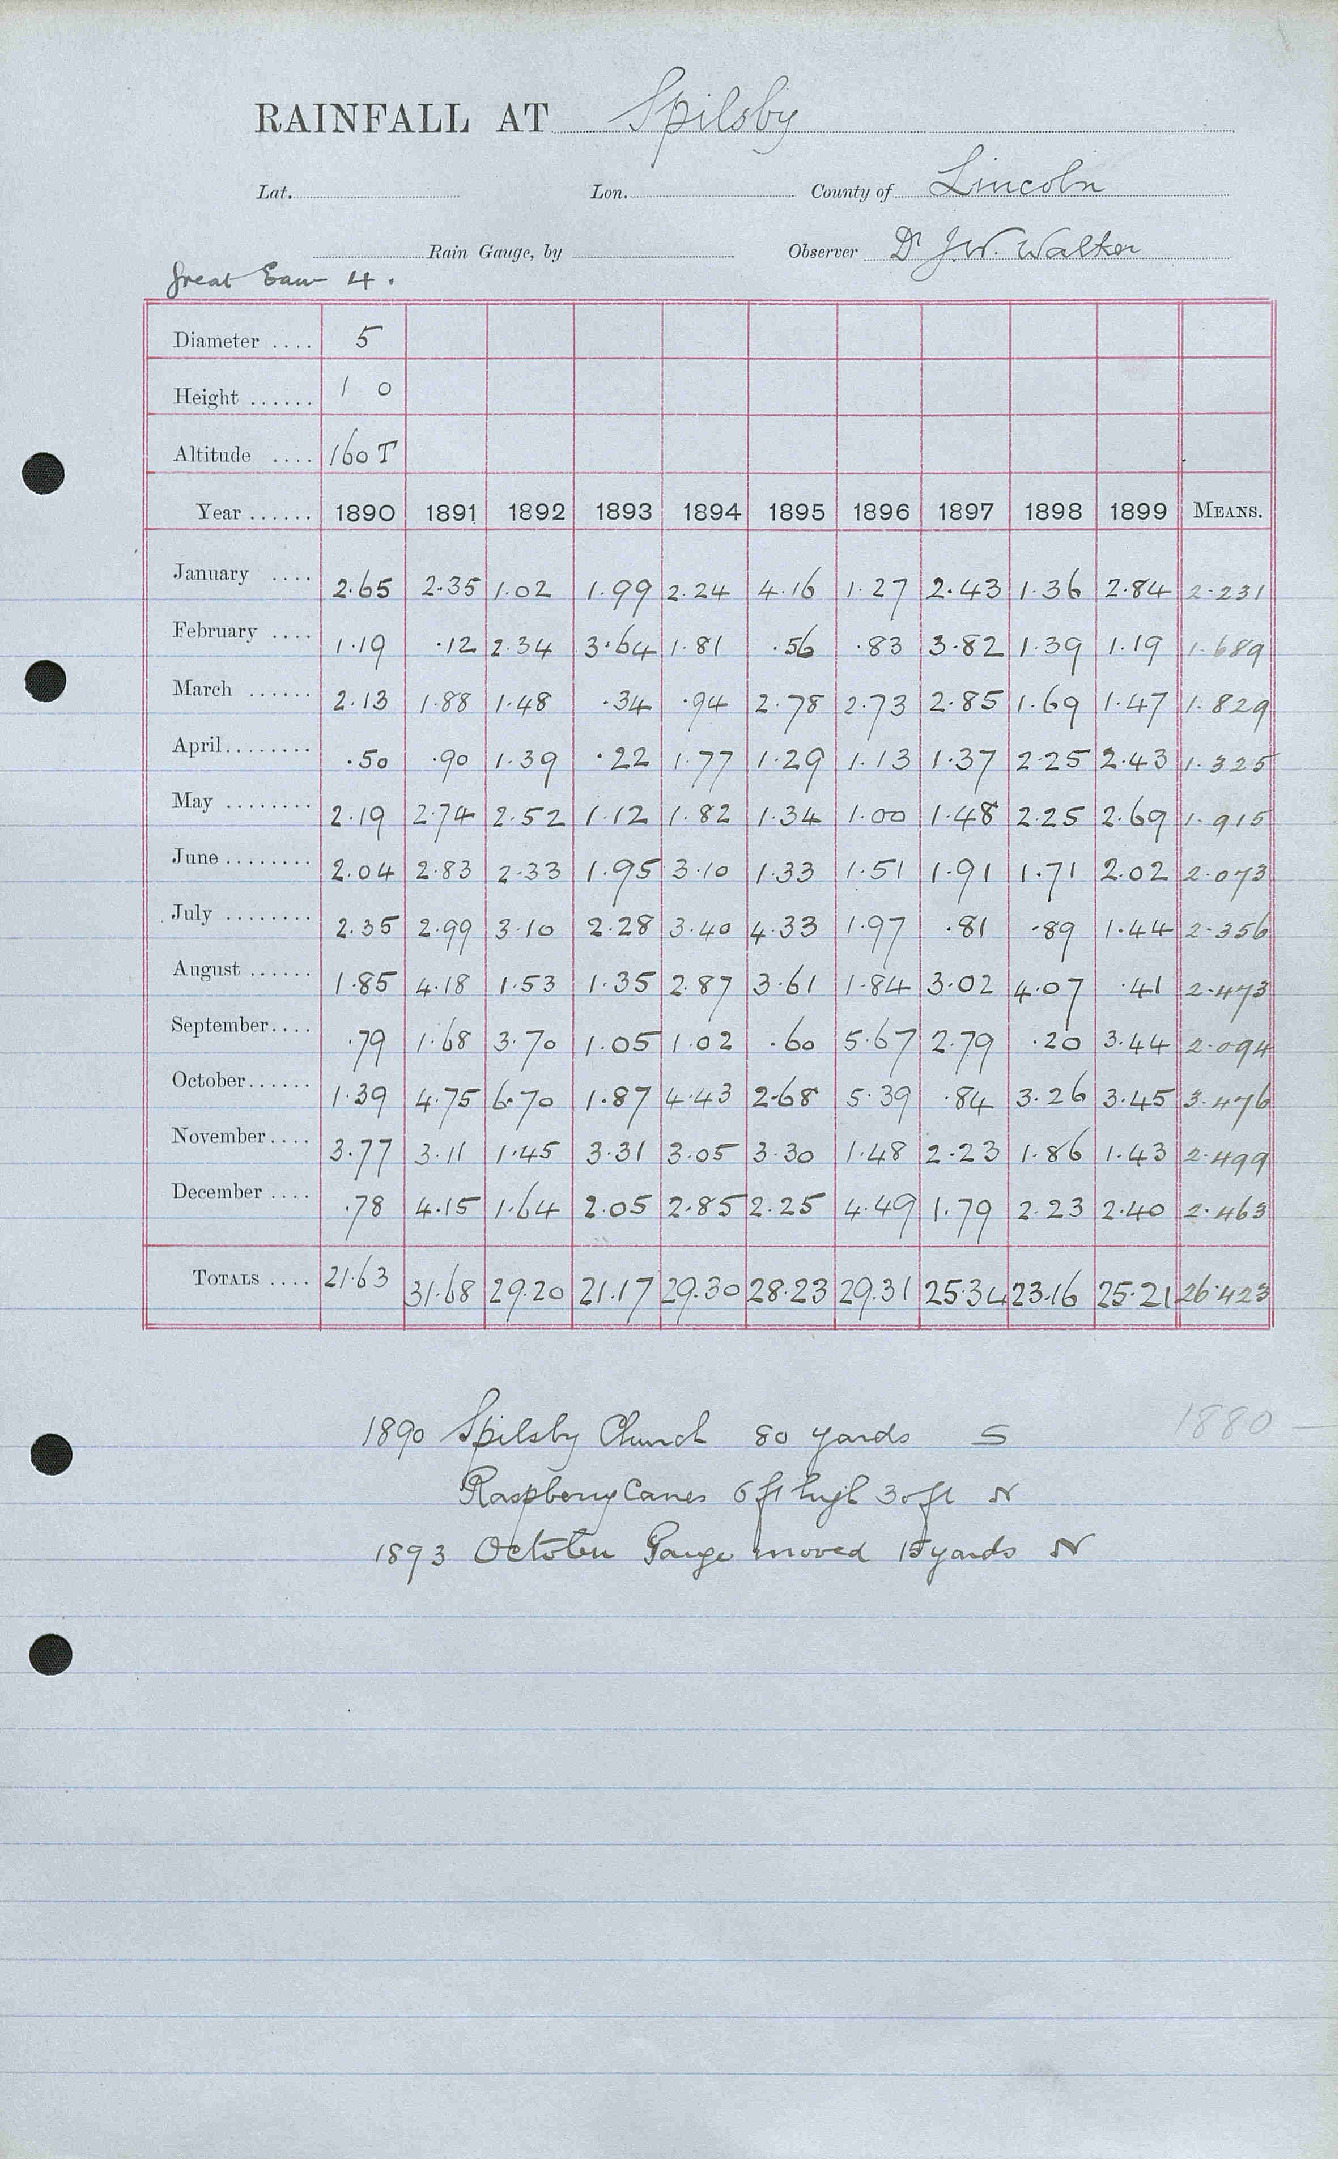 RAINFALL AT Spilsby
Lat. Lon. County of Lincoln
Rain Gauge, by Observer Dr J.W. Walker
Great Eau 4.
Diameter .... 5
Height ...... 1 0
Altitude .... 160 T
Year ...... 1890 1891 1892 1893 1894 1895 1896 1897 1898 1899 MEANS.
January .... 2.65 2.35 1.02 1.99 2.24 4.16 1.27 2.43 1.36 2.84 2.231
February .... 1.19 .12 2.34 3.64 1.81 .56 .83 3.82 1.39 1.19 1.689
March ...... 2.13 1.88 1.48 .34 .94 2.78 2.73 2.85 1.69 1.47 1.829
April........ .50 .90 1.39 .22 1.77 1.29 1.13 1.37 2.25 2.43 1.325
May ........ 2.19 2.74 2.52 1.12 1.82 1.34 1.00 1.48 2.25 2.69 1.915
June ........ 2.04 2.83 2.33 1.95 3.10 1.33 1.51 1.91 1.71 2.02 2.073
July ........ 2.35 2.99 3.10 2.28 3.40 4.33 1.97 .81 .89 1.44 2.356
August ...... 1.85 4.18 1.53 1.35 2.87 3.61 1.84 3.02 4.07 .41 2.473
September.... .79 1.68 3.70 1.05 1.02 .60 5.67 2.79 .20 3.44 2.094
October...... 1.39 4.75 6.70 1.87 4.43 2.68 5.39 .84 3.26 3.45 3.476
November.... 3.77 3.11 1.45 3.31 3.05 3.30 1.48 2.23 1.86 1.43 2.499
December .... .78 4.15 1.64 2.05 2.85 2.25 4.49 1.79 2.23 2.40 2.463
TOTALS .... 21.63 31.68 29.20 21.17 29.30 28.23 29.31 25.34 23.16 25.21 26.423
1890 Spilsby Church 80 yards S 1880 —
Raspberry Canes 6 ft high 30 ft N
1893 October Gauge moved 15 yards N